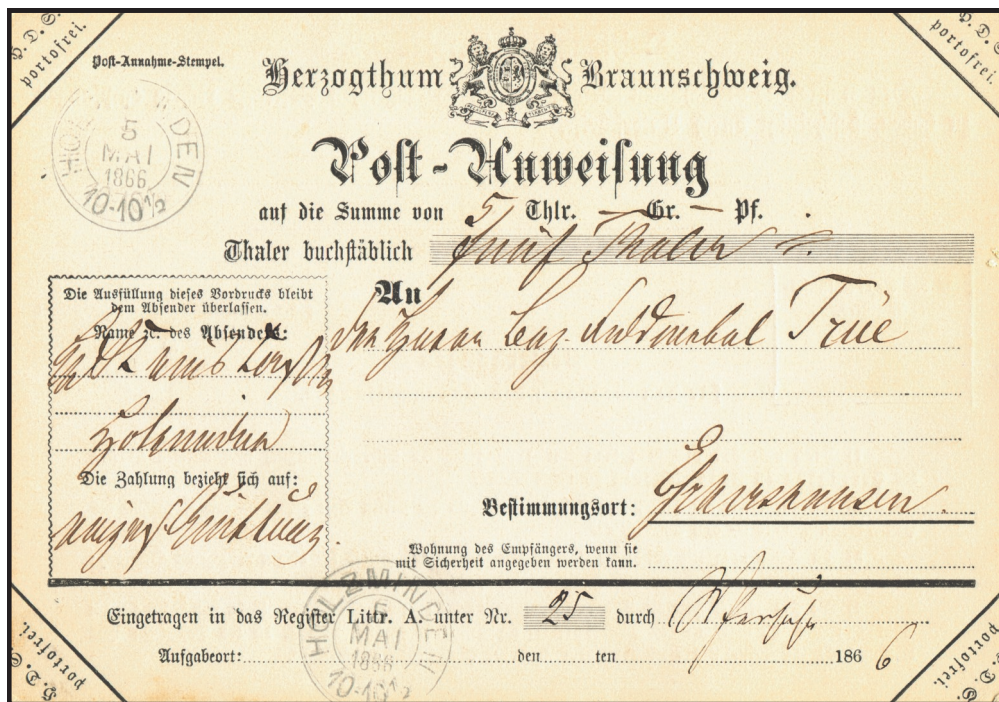 H. D. S.
portofrei.
H. D. S.
portofrei.
Post-Annahme-Stempel.
Herzogthum Braunschweig.
HOLZMINDEN
5
MAI
1866
10-10½
Post-Anweisung
auf die Summe von 5 Thlr. — Gr. — Pf.
Thaler buchstäblich fünf Thaler
Die Ausfüllung dieses Vordrucks bleibt
dem Absender überlassen.
Name ꝛc. des Absenders:
Holzminden
Die Zahlung bezieht sich auf:
Quittung.
An
den Herrn Feldwebel Trüe
Bestimmungsort: Eschershausen.
Wohnung des Empfängers, wenn sie
mit Sicherheit angegeben werden kann.
Eingetragen in das Register Littr. A. unter Nr. 25 durch
HOLZMINDEN
5
MAI
1866
10-10½
Aufgabeort: den ten 1866
H. D. S.
portofrei.
H. D. S.
portofrei.